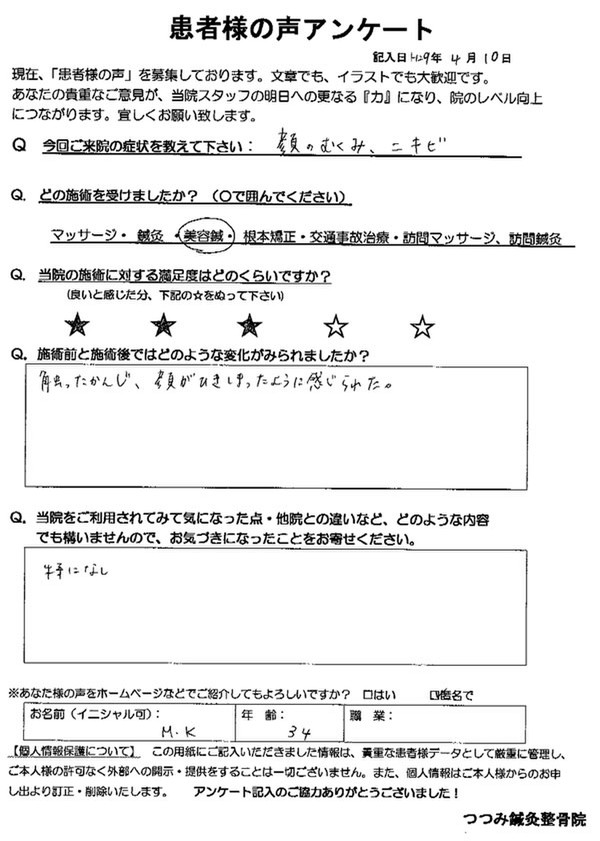 患者様の声アンケート
記入日H29年 4月 10日
現在、「患者様の声」を募集しております。文章でも、イラストでも大歓迎です。
あなたの貴重なご意見が、当院スタッフの明日への更なる『力』になり、院のレベル向上
につながります。宜しくお願い致します。
Q 今回ご来院の症状を教えて下さい： 顔のむくみ、ニキビ
Q. どの施術を受けましたか？（〇で囲んでください）
マッサージ・ 鍼灸 ・美容鍼・ 根本矯正・交通事故治療・訪問マッサージ、訪問鍼灸
Q. 当院の施術に対する満足度はどのくらいですか？
(良いと感じた分、下記の☆をぬって下さい)
★ ★ ★ ☆ ☆
Q. 施術前と施術後ではどのような変化がみられましたか？
触ったかんじ、顔がひきしまったように感じられた。
Q. 当院をご利用されてみて気になった点・他院との違いなど、どのような内容
でも構いませんので、お気づきになったことをお寄せください。
特になし
※あなた様の声をホームページなどでご紹介してもよろしいですか？ □はい □匿名で
お名前（イニシャル可）： M.K 年 齢： 34 職 業：
【個人情報保護について】 この用紙にご記入いただきました情報は、貴重な患者様データとして厳重に管理し、
ご本人様の許可なく外部への開示・提供をすることは一切ございません。また、個人情報はご本人様からのお申
し出より訂正・削除いたします。 アンケート記入のご協力ありがとうございました！
つつみ鍼灸整骨院